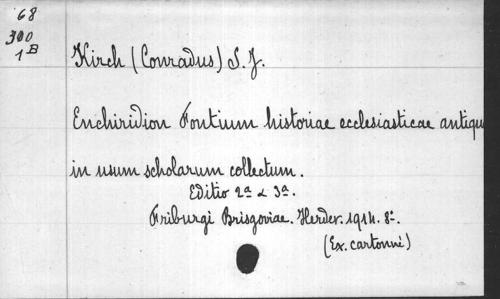 68
300
1B
Kirch (Conradus) S. J.
Enchiridion Fontium historiae ecclesiasticae antiqu
in usum scholarum collectum.
Editio 2a & 3a.
Friburgi Brisgoviae. Herder. 1914. 8º.
(Ex. cartonné)